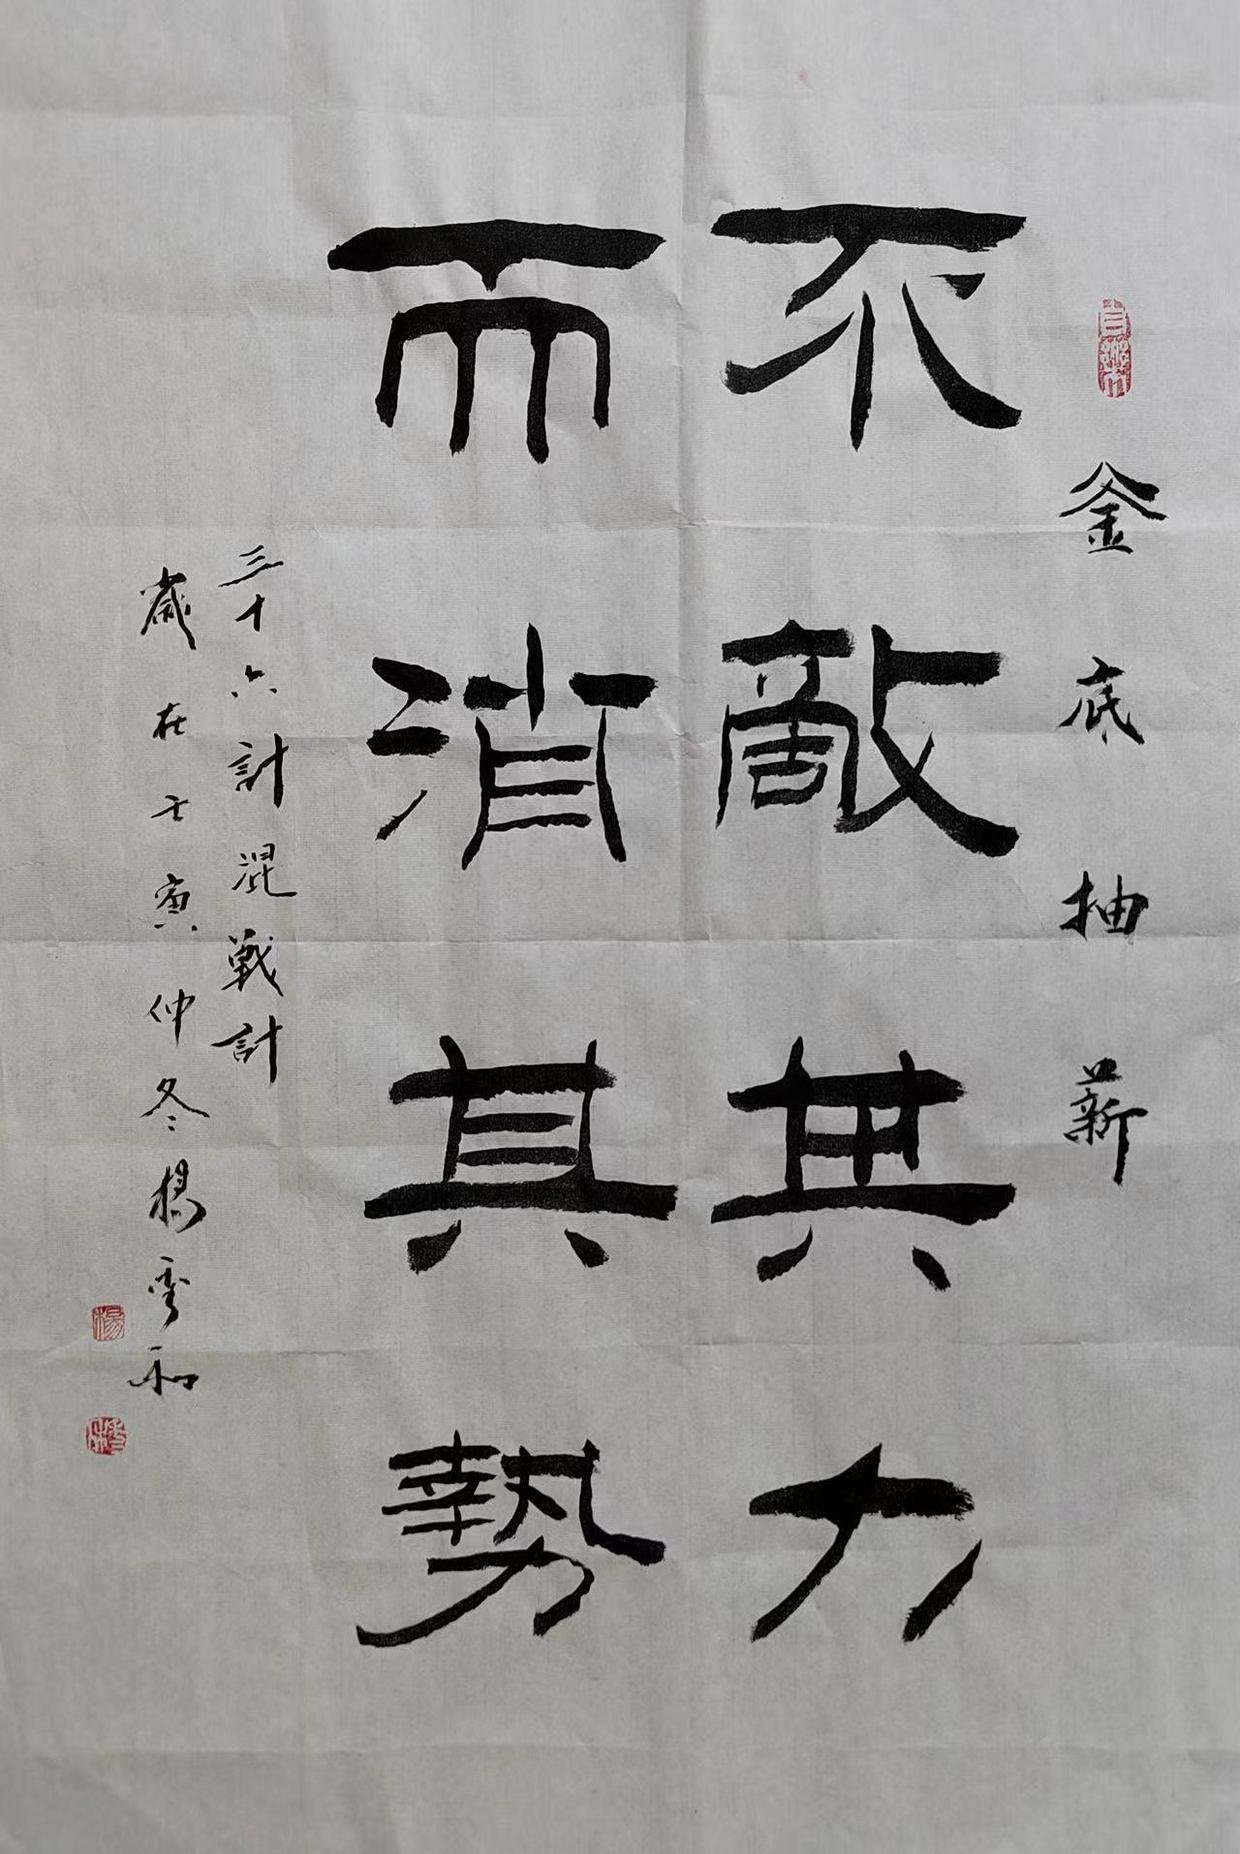 釜底抽薪
不敵其力
而消其勢
三十六計混戰計
歲在壬寅仲冬楊雲和
楊